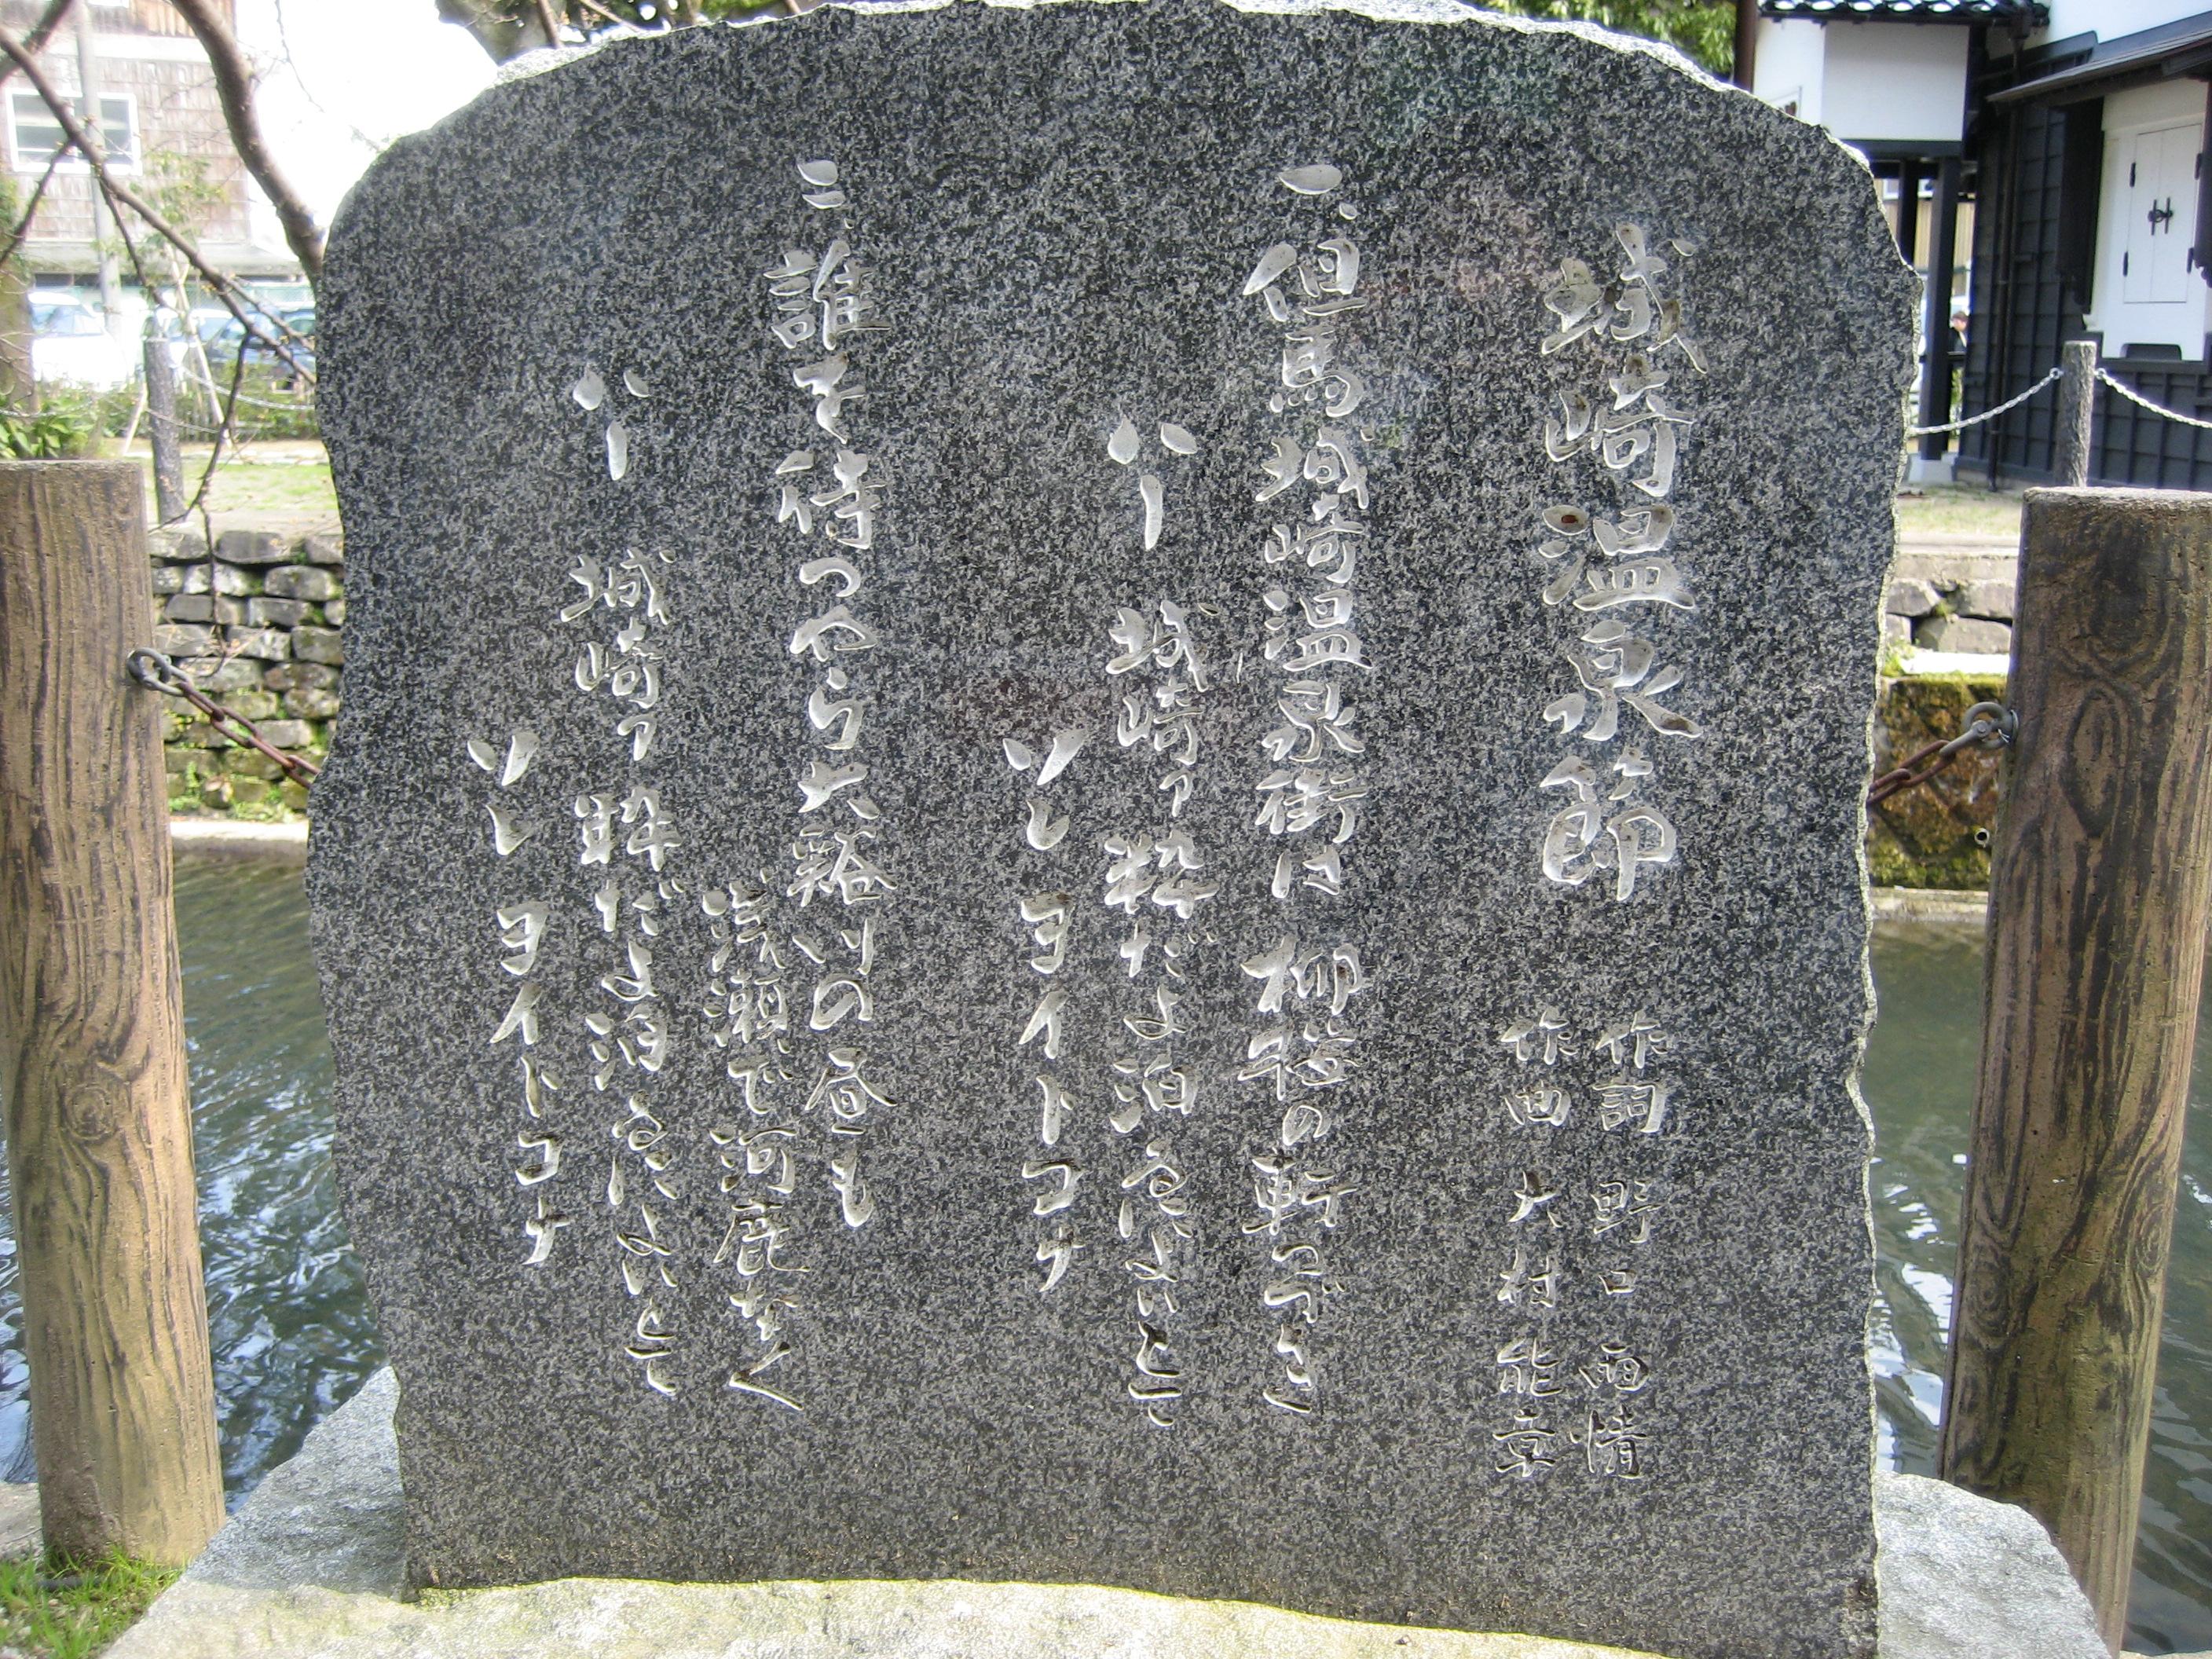 城崎温泉節
作詞 野口雨情
作曲 大村能章
一、但馬城崎温泉街は 柳桜の軒つづき
ハー 城崎ァ粋だよ泊るによいとこ
ソレ ヨイトコナ
二、誰を待つやら大谿川の昼も
浅瀬で河鹿なく
ハー 城崎ァ粋だよ泊るによいとこ
ソレ ヨイトコナ